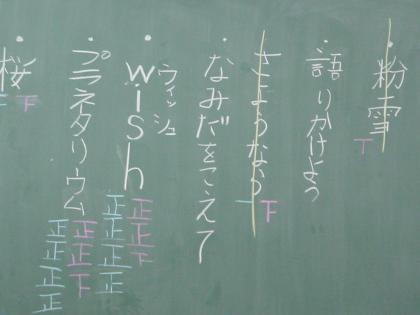 粉雪
丅
語りかけよう
さようなら
下
一
なみだをこえて
ウィッシュ
wish
正正下
正正正正
プラネタリウム
正正下
正正正正
桜
下